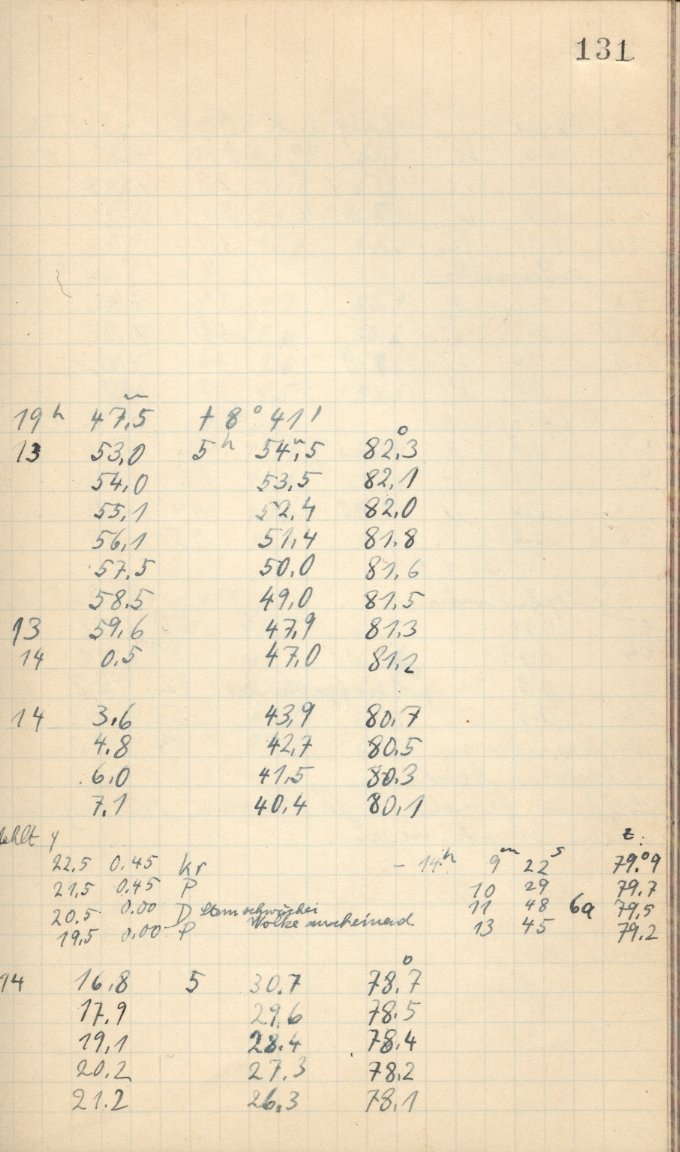 131
19 h 47,5 m + 8° 41'
13 53,0 5 h 54,5 m 82,3°
54,0 53,5 82,1
55,1 52,4 82,0
56,1 51,4 81,8
57,5 50,0 81,6
58,5 49,0 81,5
13 59,6 47,9 81,3
14 0,5 47,0 81,2
14 3,6 43,9 80,7
4,8 42,7 80,5
6,0 41,5 80,3
7,1 40,4 80,1
z:
22,5 0.45 kr - 14 h 9 m 22 s 79.°9
21,5 0.45 P 10 29 79.7
20.5 0.00 D Stern schwächer 11 48 6a 79,5
19,5 0,00 P Wolke anscheinend 13 45 79.2
14 16,8 5 30.7 78,7°
17,9 29,6 78,5
19,1 28.4 78,4
20,2 27,3 78,2
21.2 26,3 78,1